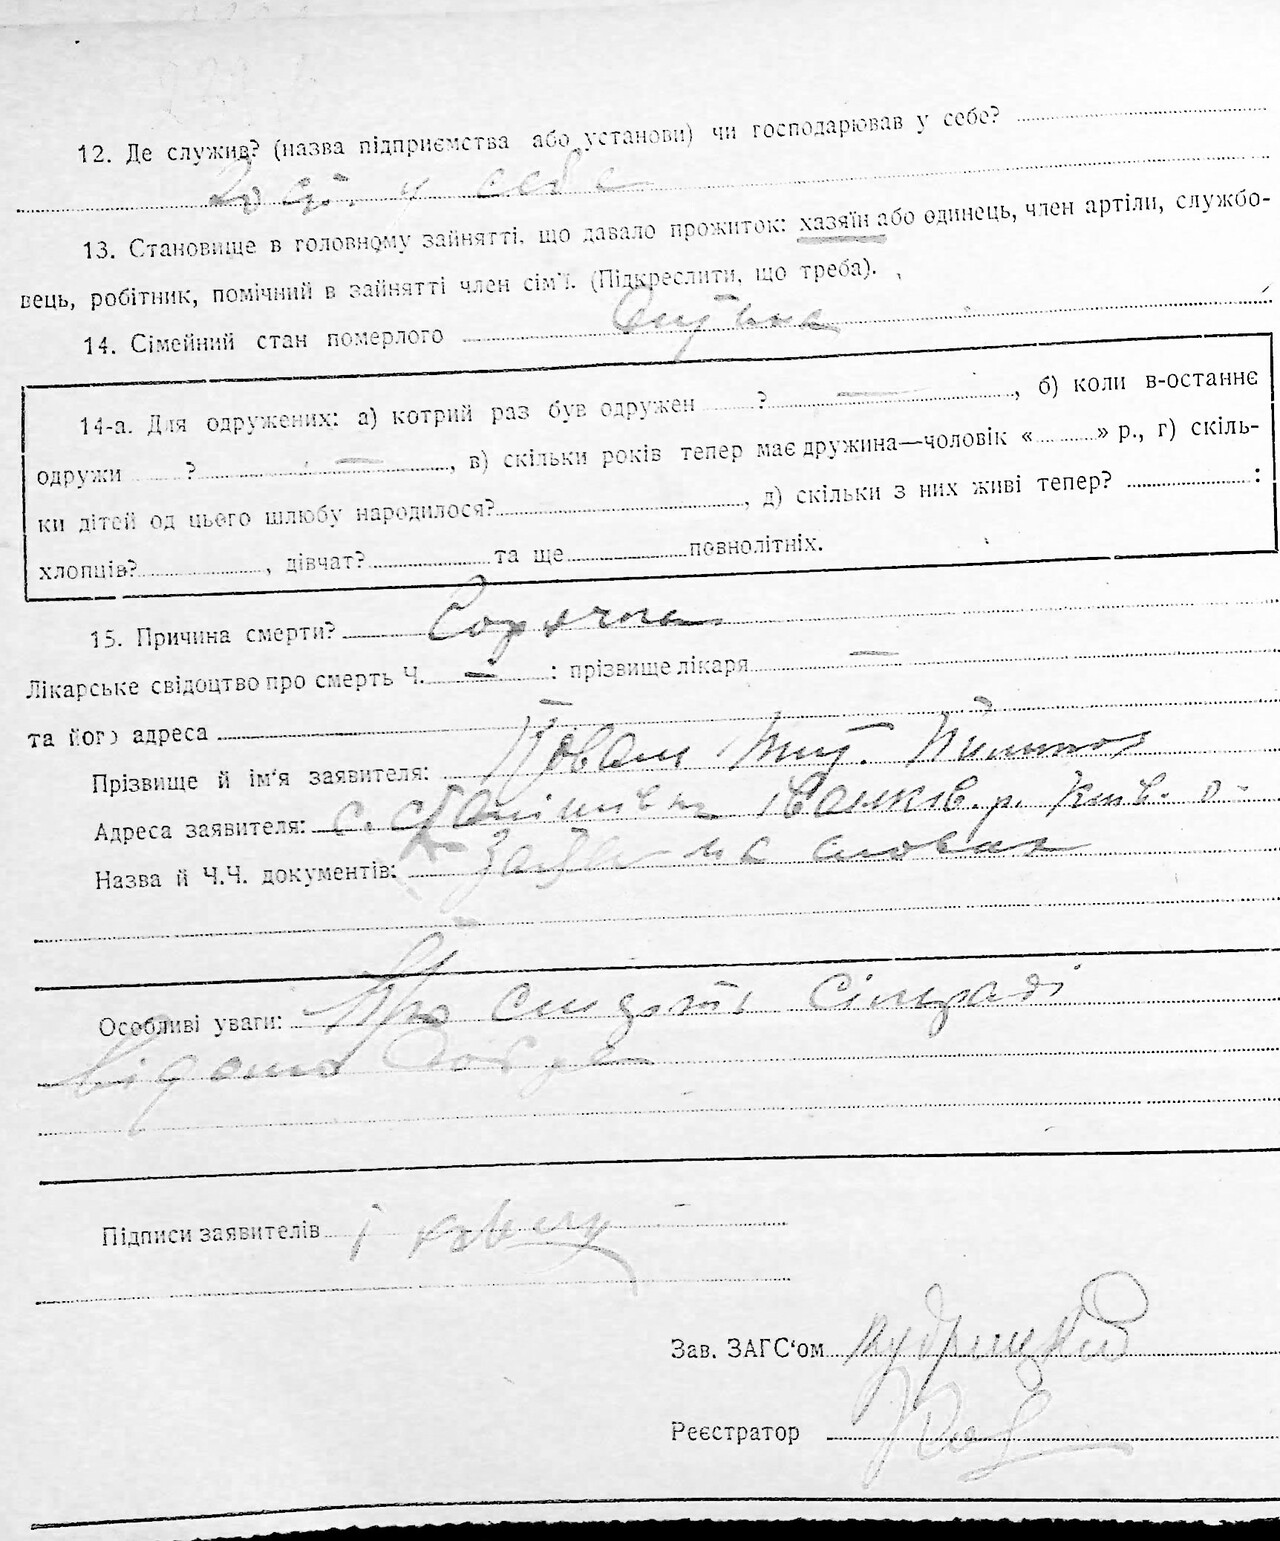 12. Де служив? (назва підприємства або установи) чи господарював у себе?
у себе
13. Становище в головному зайнятті, що давало прожиток: хазяїн або одинець, член артілі, службо-
вець, робітник, помічний в зайнятті член сім'ї. (Підкреслити, що треба).
14. Сімейний стан померлого
14-а. Для одружених: а) котрий раз був одружен ? —, б) коли в-останнє
одружи ? —, в) скільки років тепер має дружина—чоловік « » р., г) скіль-
ки дітей од цього шлюбу народилося? , д) скільки з них живі тепер? :
хлопців? , дівчат? та ще повнолітніх.
15. Причина смерти? Горячка
Лікарське свідоцтво про смерть Ч. — : прізвище лікаря —
та його адреса
Прізвище й ім'я заявителя:
Адреса заявителя: с. Іванків. р. Київ. о-
Назва й Ч.Ч. документів: Заява на словах
Особливі уваги: Про смерть сільраді
відомо добре
Підписи заявителів
Зав. ЗАГС'ом Кудрицкий
Реєстратор